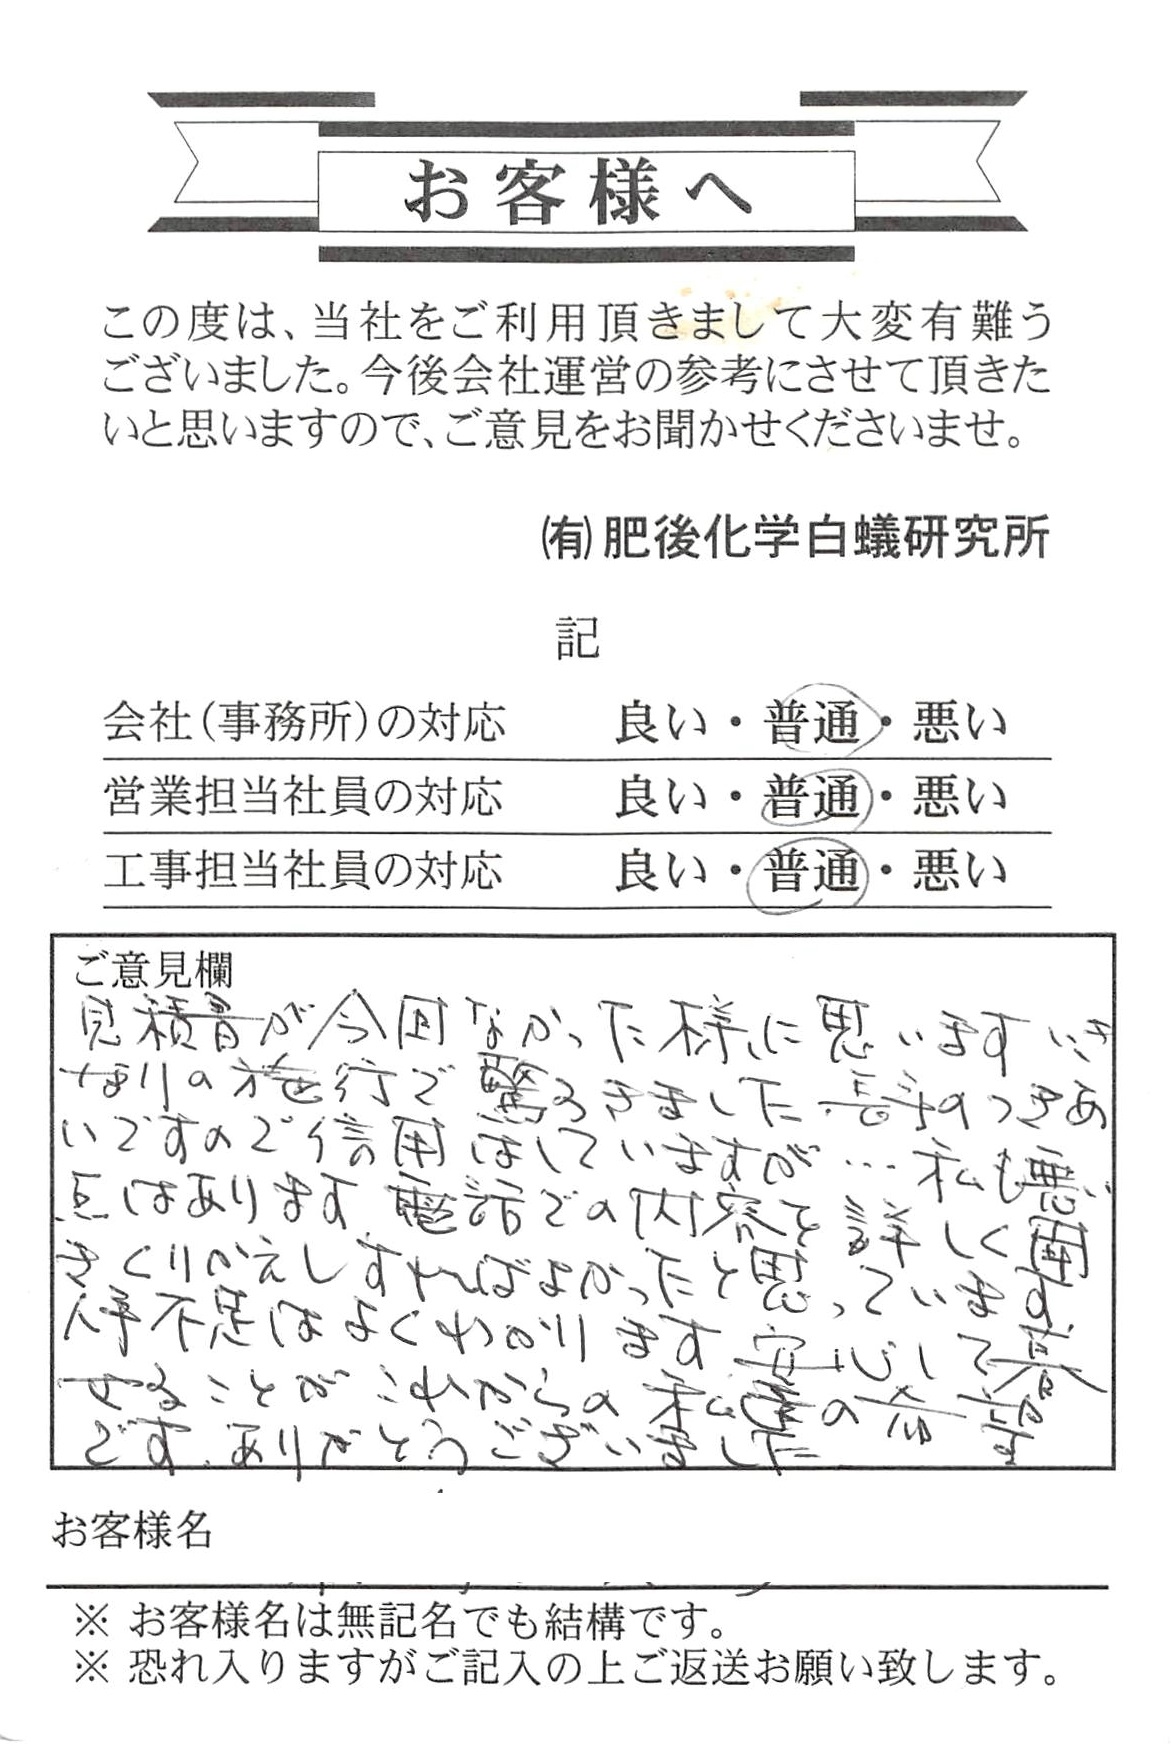 お客様へ
この度は、当社をご利用頂きまして大変有難う
ございました。今後会社運営の参考にさせて頂きた
いと思いますので、ご意見をお聞かせくださいませ。
㈲肥後化学白蟻研究所
記
会社（事務所）の対応 良い・普通・悪い
営業担当社員の対応 良い・普通・悪い
工事担当社員の対応 良い・普通・悪い
ご意見欄
見積書が今回なかった様に思います いき
なりの施行で驚ろきました 長年のつきあ
いですので信用はしていますが… 私も悪い
点はあります 電話での内容を詳しく聞
きくりかえしすればよかったと思っています
人手不足はよくわかります 安心して暮
せることがこれからの私達の希望
です。ありがとうございました
お客様名
※ お客様名は無記名でも結構です。
※ 恐れ入りますがご記入の上ご返送お願い致します。